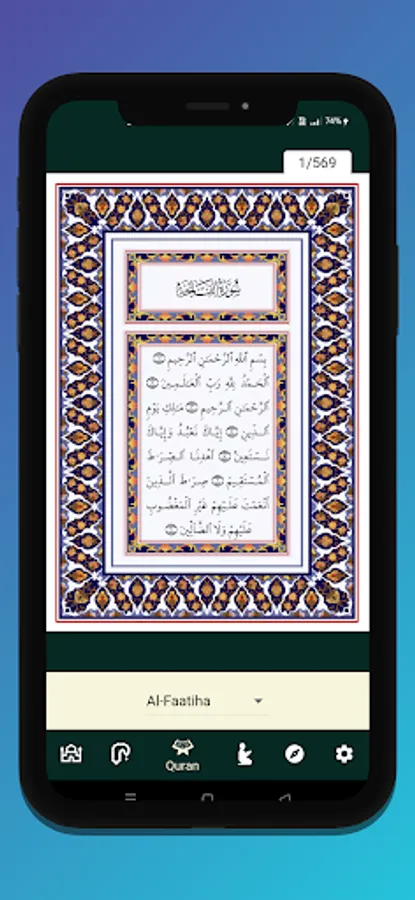 74%
1/569
سُورَةُ الفَاتِحَةِ
بِسْمِ ٱللَّهِ ٱلرَّحْمَٰنِ ٱلرَّحِيمِ ۝١
ٱلْحَمْدُ لِلَّهِ رَبِّ ٱلْعَٰلَمِينَ ۝٢
ٱلرَّحْمَٰنِ ٱلرَّحِيمِ ۝٣ مَٰلِكِ يَوْمِ
ٱلدِّينِ ۝٤ إِيَّاكَ نَعْبُدُ وَإِيَّاكَ
نَسْتَعِينُ ۝٥ ٱهْدِنَا ٱلصِّرَٰطَ
ٱلْمُسْتَقِيمَ ۝٦ صِرَٰطَ ٱلَّذِينَ
أَنْعَمْتَ عَلَيْهِمْ غَيْرِ ٱلْمَغْضُوبِ
عَلَيْهِمْ وَلَا ٱلضَّآلِّينَ ۝٧
Al-Faatiha
Quran